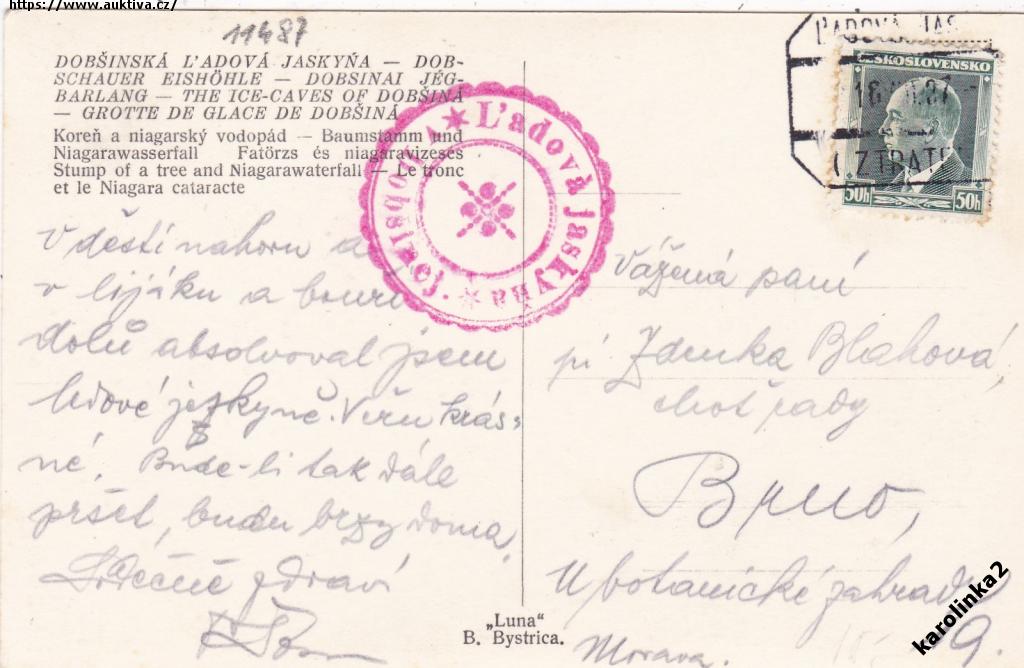 https://www.auktiva.cz/
11487
DOBŠINSKÁ ĽADOVÁ JASKYŇA — DOB-
SCHAUER EISHÖHLE — DOBSINAI JÉG-
BARLANG — THE ICE-CAVES OF DOBŠINÁ
— GROTTE DE GLACE DE DOBŠINÁ
Koreň a niagarský vodopád — Baumstamm und
Niagarawasserfall Fatörzs és niagaravizesés
Stump of a tree and Niagarawaterfall — Le tronc
et le Niagara cataracte
V dešti nahoru a
v lijáku a bouři
dolů absolvoval jsem
ledové jeskyně. Věru krás-
né. Bude-li tak dále
pršet, budu brzy doma.
Srdečně zdraví
Ľadová jaskyňa
ČESKOSLOVENSKO
50h 50h
Vážená paní
pí Zdenka Bláhová,
choť rady
Brno,
U botanické zahrady
9.
Morava.
„Luna“
B. Bystrica.
karolinka2